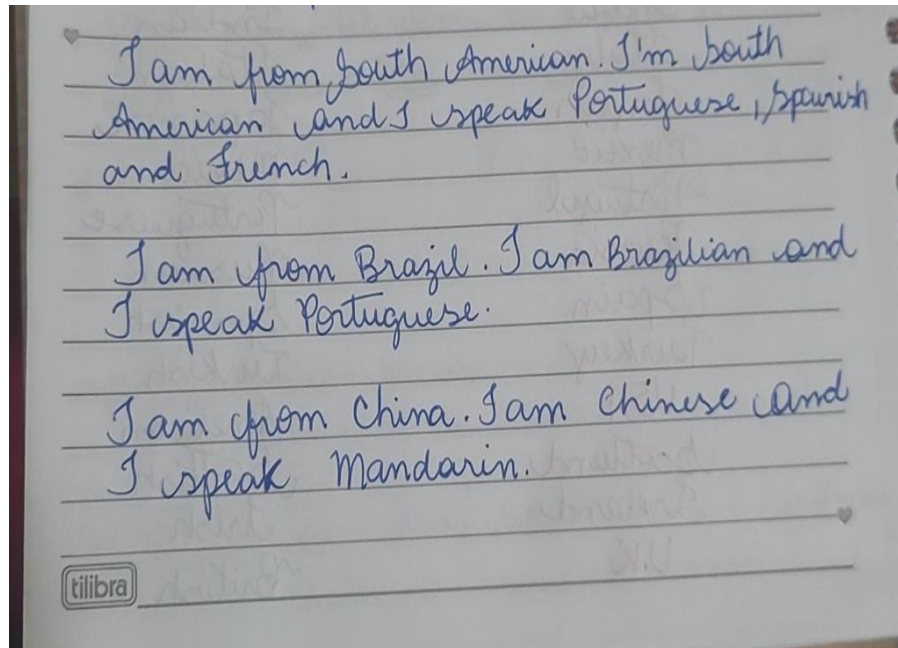 I am from South American. I'm South
American and I speak Portuguese, Spanish
and French.
I am from Brazil. I am Brazilian and
I speak Portuguese.
I am from China. I am Chinese and
I speak Mandarin.
tilibra